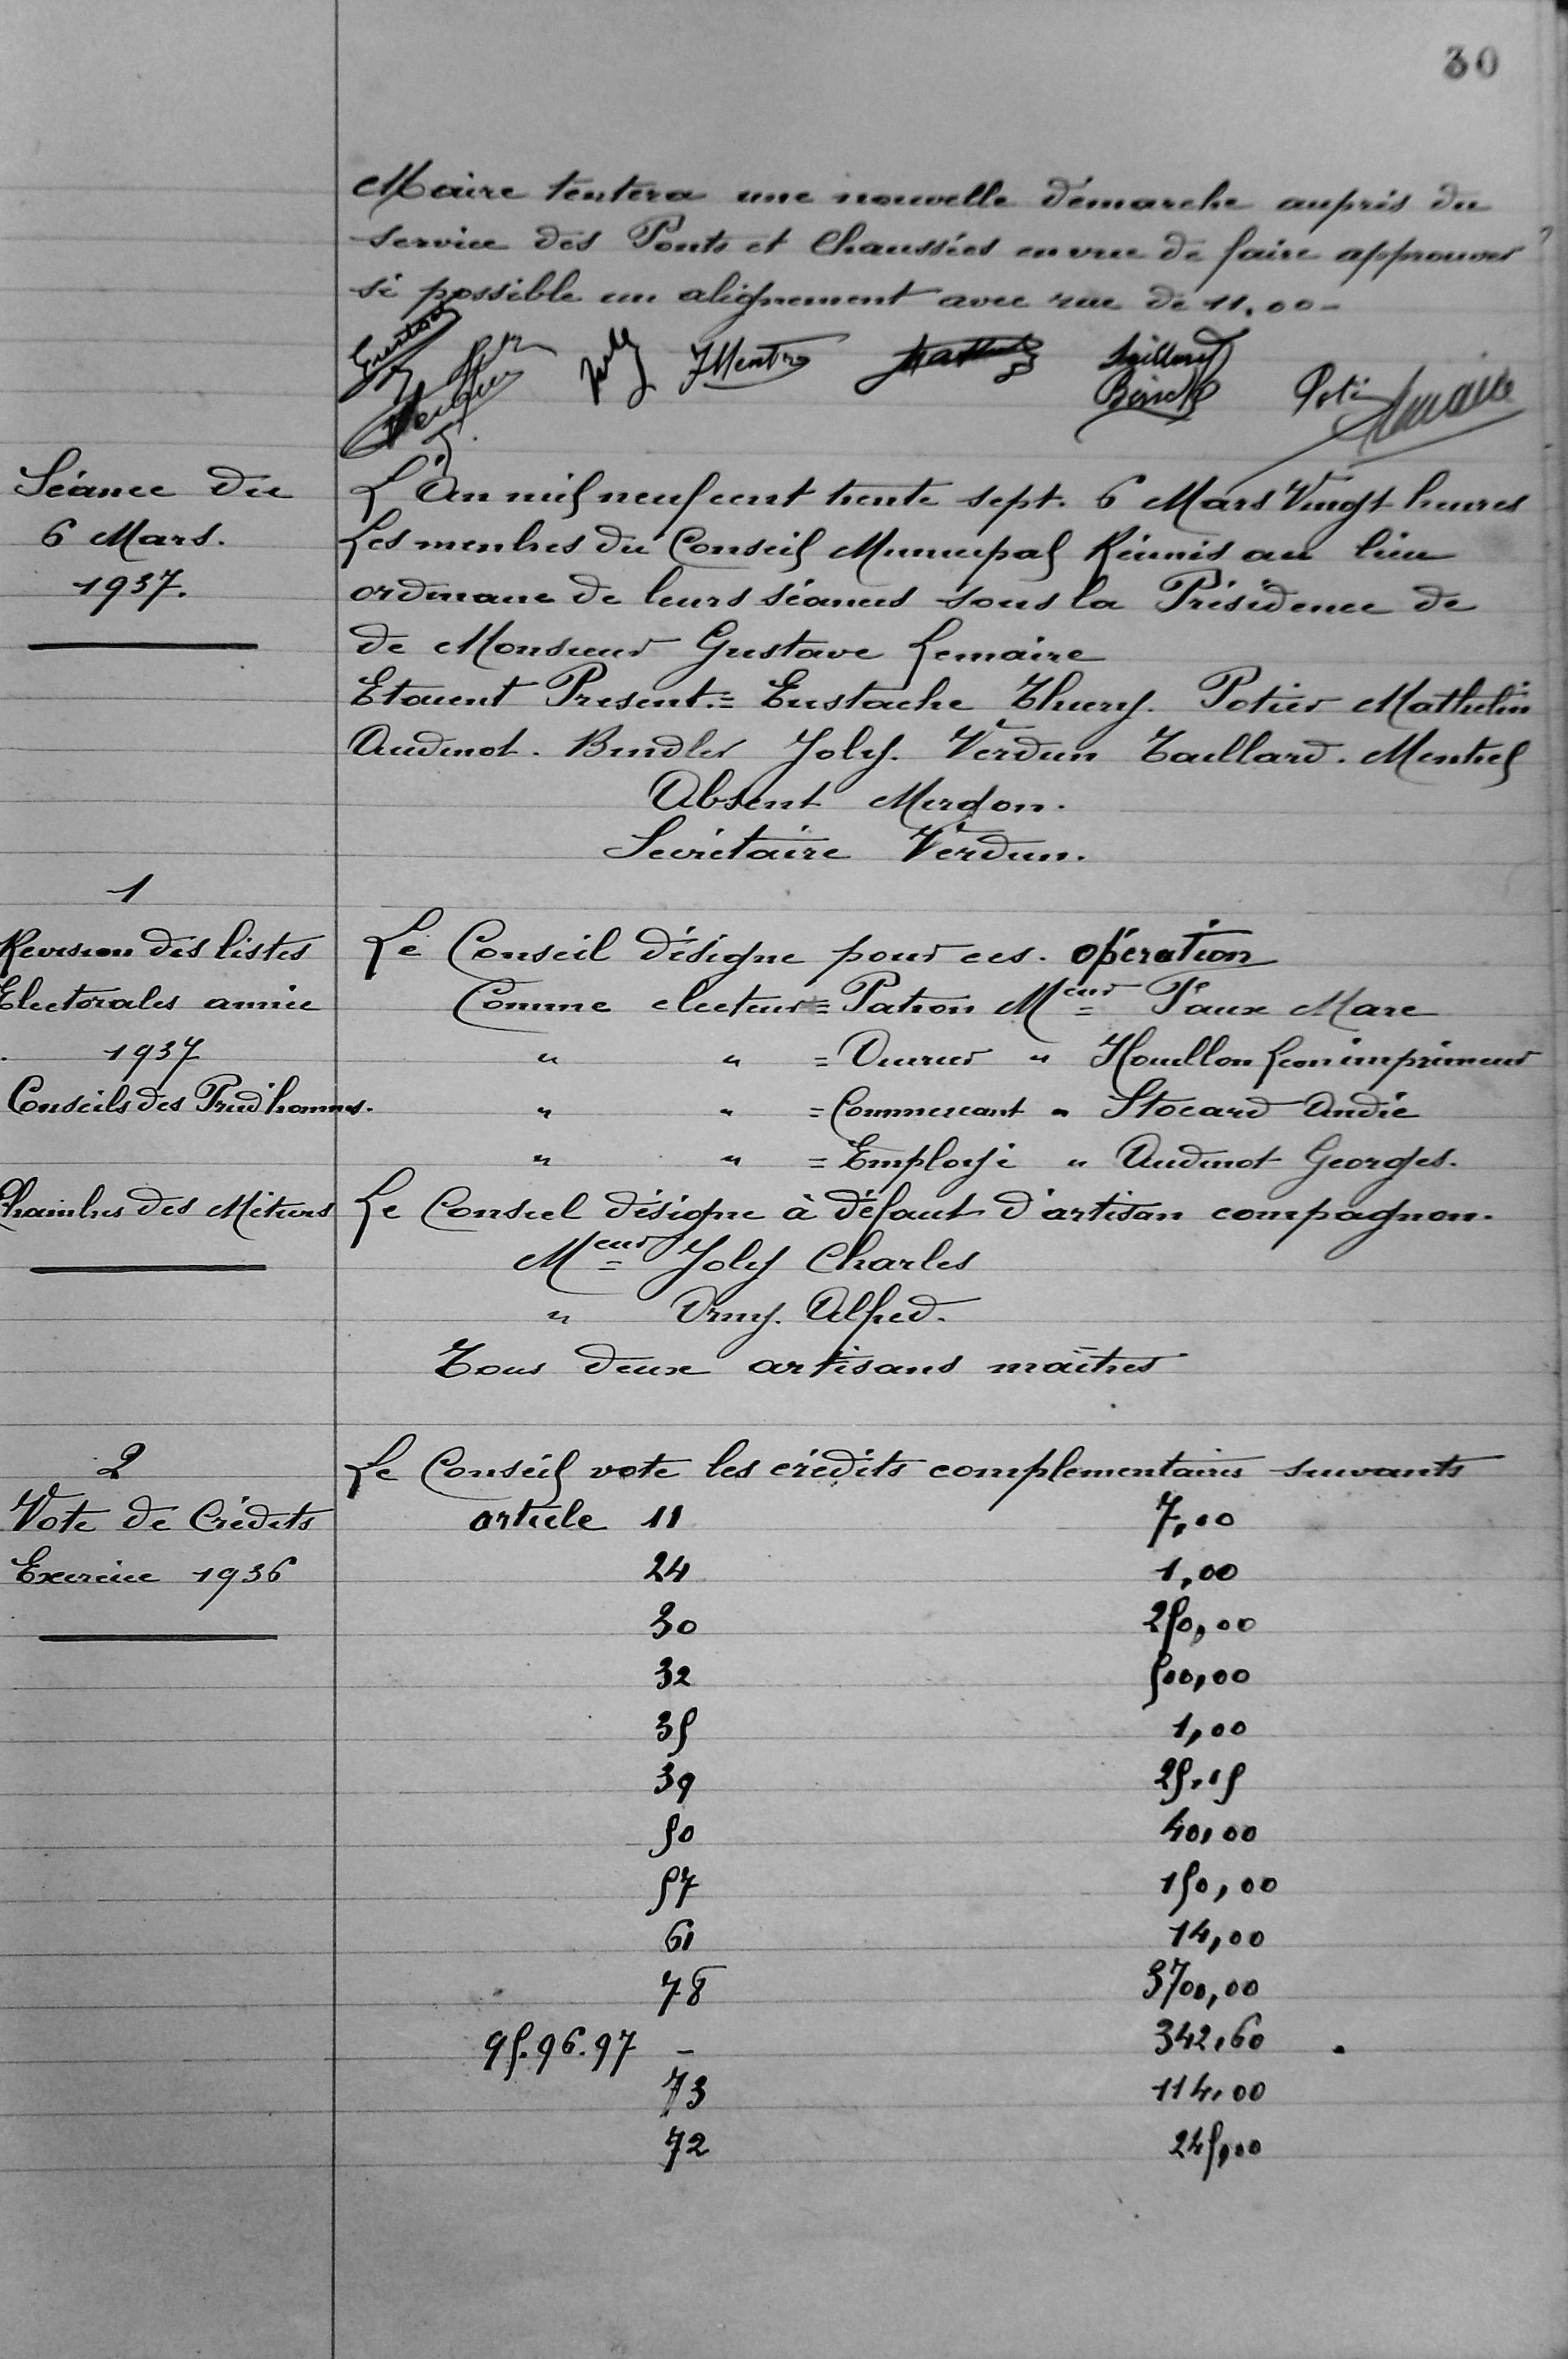 30
Maire tentera une nouvelle démarche auprès du
service des Ponts et Chaussées en vue de faire approuver
si possible un alignement avec rue de 11,00-
Joly Mentre Taillard
Potier Lemaire
Séance du
6 Mars.
1937.
L'An mil neuf cent trente sept. 6 Mars Vingt heures
Les menbres du Conseil Municipal Réunis au lieu
ordinaire de leurs séances sous la Présidence de
de Monsieur Gustave Lemaire
Etaient Present.= Eustache Thiery. Potier Mathelin
Audinot. Bindler Joly. Verdun Taillard. Mentrel
Absent Mergon.
Secrétaire Verdun.
1
Revision des listes
Electorales année
1937
Conseils des Prud'hommes.
Le Conseil désigne pour ces. opération
Comme electeur = Patron Meur = Paux Marc
" " = Ouvrier " Houillon Leon imprimeur
" " = Commercant " Stocard André
" " = Employé " Audinot Georges.
Chambres des Métiers
Le Conseil désigne à défaut d'artisan compagnon.
Meur = Joly Charles
" Urny. Alfred.
Tous deux artisans maîtres
2
Vote de Crédits
Exercice 1936
Le Conseil vote les crédits complementaires suivants
article 11 7,00
24 1,00
30 250,00
32 500,00
35 1,00
39 25,15
50 40,00
57 150,00
61 14,00
78 3700,00
95.96.97 - 342,60
73 114,00
72 245,00